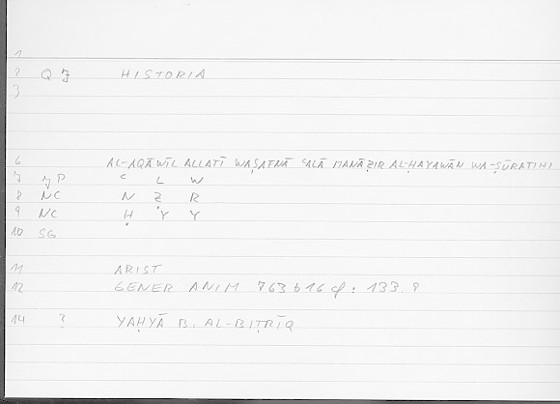 1
2 Q Z HISTORIA
3
6 AL-AQĀWĪL ALLATĪ WAṢAFNĀ ʿALĀ MANĀẒIR AL-ḤAYAWĀN WA-ṢŪRATIHI
7 P C L W
8 NC N Ẓ R
9 NC Ḥ Y Y
10 SG
11 ARIST
12 GENER ANIM 763 b 16 : 133.9
14 ? YAḤYĀ B. AL-BIṬRĪQ